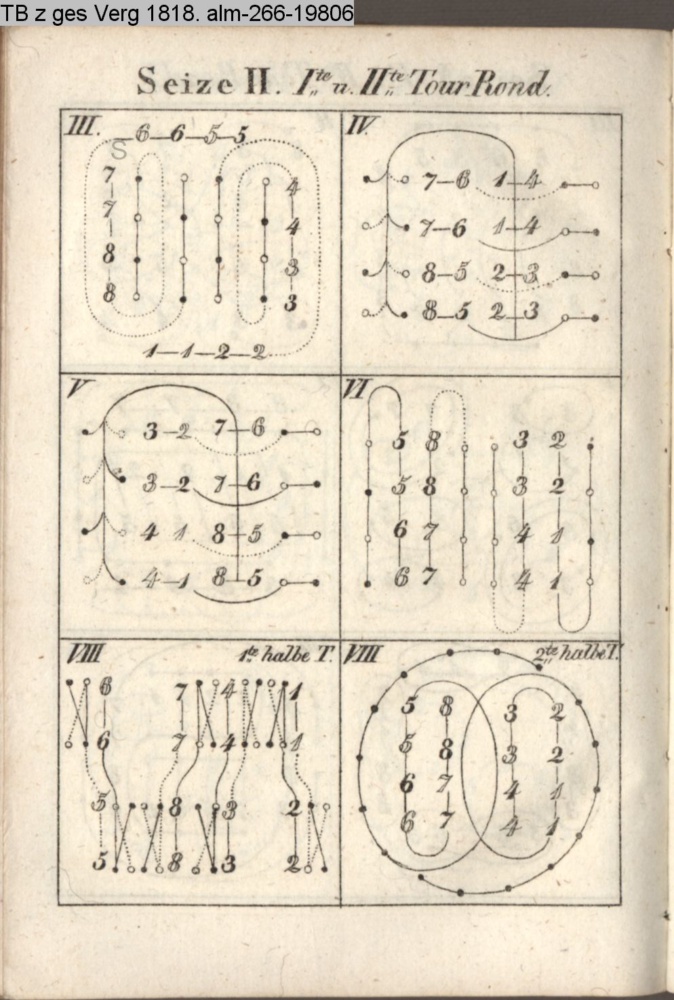 TB z ges Verg 1818. alm-266-19806
Seize II. I.te u. II.te Tour Rond.
III.
6 6 5 5
S
7 4
7 4
8 3
8 3
1 1 2 2
IV.
7 6 1 4
7 6 1 4
8 5 2 3
8 5 2 3
V
3 2 7 6
3 2 7 6
4 1 8 5
4 1 8 5
VI
5 8 3 2
5 8 3 2
6 7 4 1
6 7 4 1
VIII 1.te halbe T.
6 7 4 1
6 7 4 1
5 8 3 2
5 8 3 2
VIII 2.te halbe T.
5 8 3 2
5 8 3 2
6 7 4 1
6 7 4 1